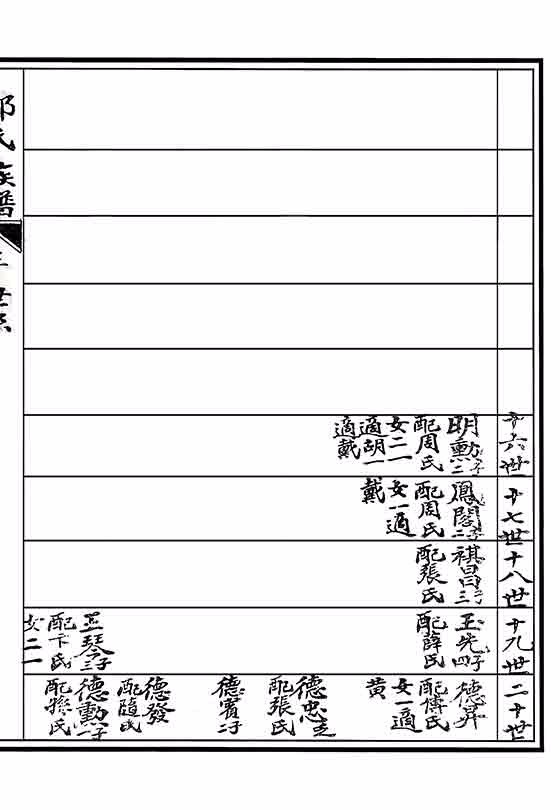 十六世
明勳二子
配周氏
女二一
適胡一
適戴
十七世
鳳閣二子
配周氏
女一適
戴
十八世
祺昌三子
配張氏
十九世
玉先四子
配薛氏
玉琴三子
配卞氏
女二一
二十世
德昇
配傅氏
女一適
黃
德忠
配張氏
德賓二子
德發
配隨氏
德勳一子
配孫氏
氏族譜
世系